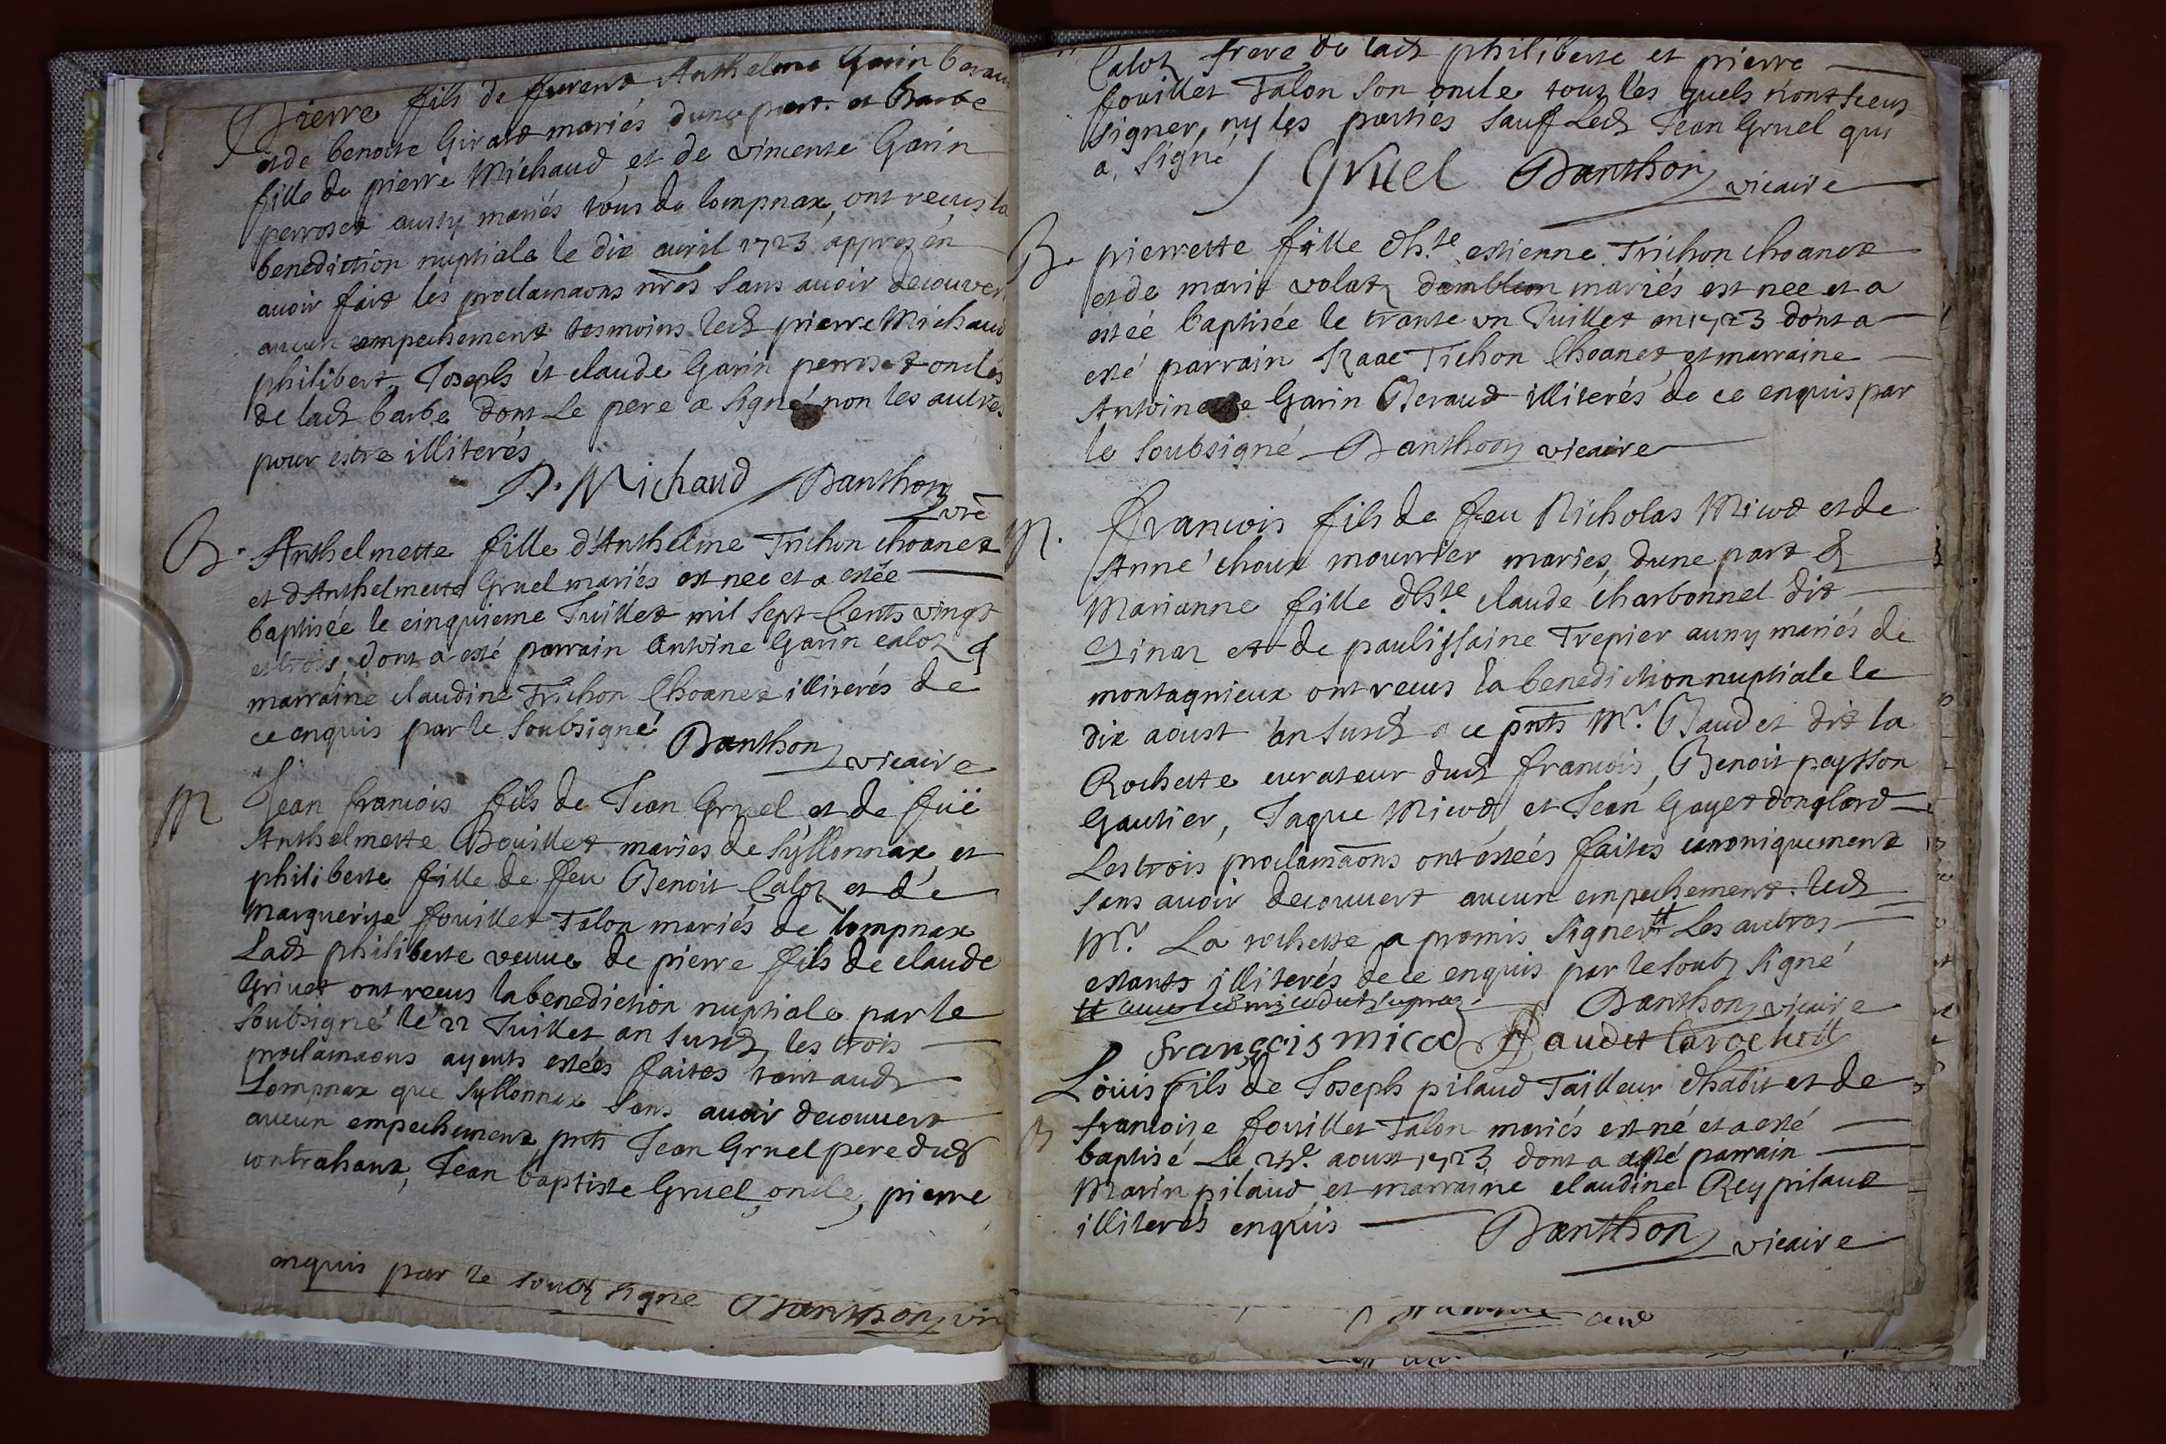 Pierre fils de furent Anthelme Garin beraud
et de benoite Girard mariés dune part. et Barbe
fille de pierre Michaud et de vincente Garin
perroset aussy mariés tous de lompnax, ont recus la
benediction nuptiale le dix avril 1723 appres én
avoir fait les proclamaons nres sans avoir decouver
aucun empechement tesmoins led pierre Michaud
philibert, Joseph et claude Garin perroset oncles
de lad barbe dont Le pere a signé non les autres
pour estre illiterés
P. Michaud Danthon
vre
B. Anthelmette fille d'Anthelme Trichon choanet
et d'Anthelmette Gruel mariés est nee et a estée
baptisée le cinquieme Juillet mil sept Cents vingt
et trois, dont a esté parrain Antoine Garin caloz &
marraine claudine Trichon Choanet illiterés de
ce enquis par le soubsigné
Danthon vicaire
M Jean francois fils de Jean Gruel et de füe
Anthelmette Bouillet mariés de syllonnax et
philiberte fille de feu Benoit Caloz et de
Marguerite fouillet Talon mariés de lompnax
Lad philiberte veuve de pierre fils de claude
Grivet ont recus la benediction nuptiale par le
soubsigné le 22 Juillet an susd les trois
proclamaons ayents estées faites tant aud
Lompnax que syllonnax sans avoir decouvert
aucun empechement pnts Jean Gruel pere dud
contrahant, Jean baptiste Gruel oncle, pierre
enquis par le soub signe Danthon vic
Caloz frere de lad philiberte et pierre
fouillet Talon son oncle tous lés quels n'ont sceus
signer, ny les parties sauf Led Jean Gruel qui
a signé
J Gruel Danthon vicaire
B. pierrette fille d'hte estienne Trichon choanet
et de marie volat d'ambleon mariés est nee et a
estéé baptisée le trante un Juillet an 1723 dont a
esté parrain Isaac Tichon Choanet et marraine
Antoinette Garin Beraud illiterés de ce enquis par
le soubsigné Danthon vicaire
M. Francois fils de feu Nicholas Micod et de
Anne choux mourrier mariés dune part &
Marianne fille d'hte claude charbonnel dit
et de Trepier aussy mariés de
montagnieux ont recus la benediction nuptiale le
dix aoust an susd a ce pnts Mr. Baudet dit la
Rochette curateur dud francois, Benoit paysson
Gautier, Jaque Micod et Jean Gayet donglard
Les trois proclamaons ont estéés faites canoniquement
sans avoir decouvert aucun empechement. led
Mr. La rochette a promis signer # Les autres
estants illiterés de ce enquis par le soub signé
# avec led micod
Danthon vicaire
françois micod Baudet Larochett
Loüis fils de Joseph pilaud Tailleur d'habit et de
B francoise fouillet Talon mariés est né et a esté
baptisé Le aoust 1723 dont a esté parrain
Marin pilaud et marraine claudine Rey pilaud
illiterés enquis
Danthon vicaire